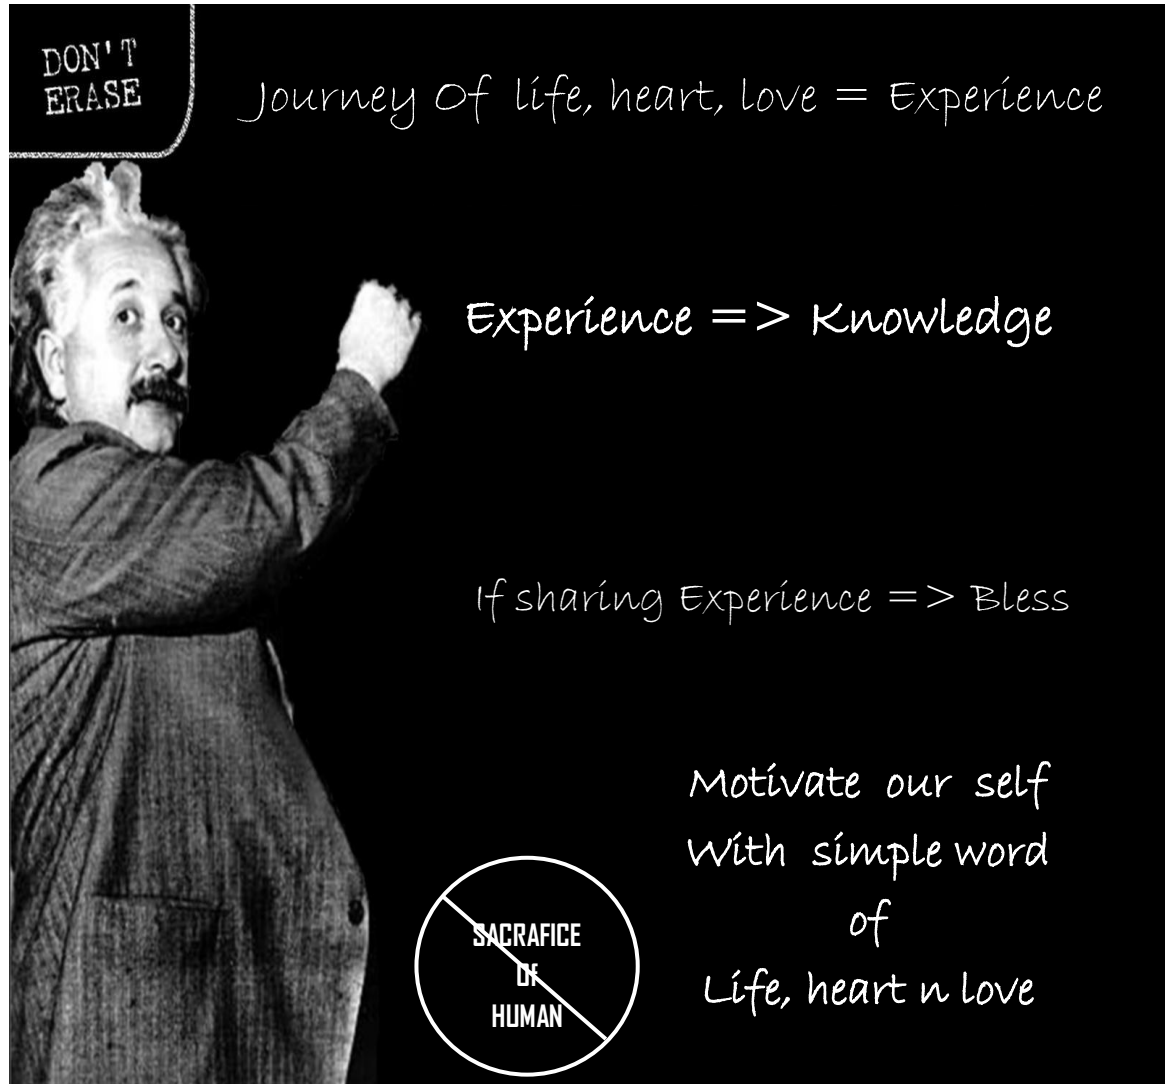 DON'T
ERASE
Journey Of life, heart, love = Experience
Experience => Knowledge
If sharing Experience => Bless
Motivate our self
With simple word
of
Life, heart n love
SACRAFICE
Of
HUMAN